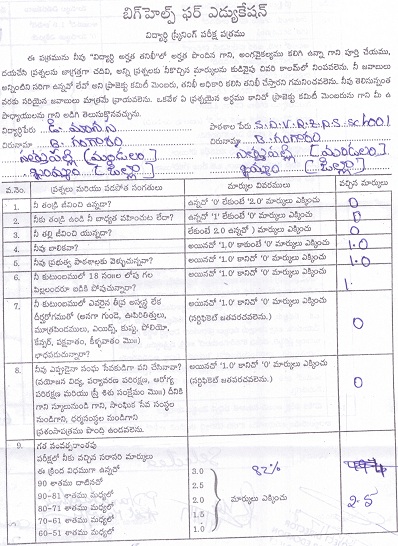 బిగ్‌హెల్ప్ ఫర్ ఎడ్యుకేషన్
విద్యార్థి స్క్రీనింగ్ పరీక్ష పత్రము
ఈ పత్రమును నీవు "విద్యార్థి అర్హత తనిఖీ"లో అర్హత పొందిన గాని, అంగవైకల్యము కలిగి ఉన్నా గాని పూర్తి చేయము,
దయచేసి ప్రశ్నలను జాగ్రత్తగా చదివి, అన్ని ప్రశ్నలకు నీకొచ్చిన మార్కులను కుడివైపు చివరి కాలమ్‌లో నింపవలెను. నీ జవాబులు
అన్నింటిని సరిగా ఉన్నవో లేవో అని ప్రాజెక్టు కమిటీ మెంబరు, తనిఖీ అధికారి కలిసి తనిఖీ చేస్తారని గమనించవలెను. నీవు తెలిసినంత
వరకు సరియైన జవాబులు మాత్రమే వ్రాయవలెను. ఒకవేళ ఏ ప్రశ్నయైన అర్థము కానిచో ప్రాజెక్టు కమిటీ మెంబరును గాని మీ ఉ
పాధ్యాయులను గాని అడిగి తెలుసుకొనవచ్చును.
విద్యార్థిపేరు డి. మానస పాఠశాల పేరు S.D.V.R.Z.P.S. School
చిరునామా B. గంగారం చిరునామా B. గంగారం
సత్తుపల్లి (మండలం) సత్తుపల్లి [మండలం]
ఖమ్మం [జిల్లా] ఖమ్మం [జిల్లా]
వ.నెం. ప్రశ్నలు మరియు పరిచిత సంగతులు మార్కుల వివరములు వచ్చిన మార్కులు
1. నీ తండ్రి జీవించి ఉన్నాడా? ఉన్నచో '0' లేకుంటే '2.0' మార్కులు ఎక్కించు 0
2. నీకు తండ్రి ఉండి నీ బాధ్యత వహించుట లేదా? ఉన్నచో '1' లేకుంటే '0' మార్కులు ఎక్కించు 0
3. నీ తల్లి జీవించి యున్నదా? లేకుంటే 2.0 ఉన్నచో 0 మార్కులు ఎక్కించు 0
4. నీవు బాలికవా? అయినచో '1.0' కాకుంటే '0' మార్కులు ఎక్కించు 1.0
5. నీవు ప్రభుత్వ పాఠశాలకు వెళ్ళుచున్నవా? అయినచో '1.0' కాకుంటే '0' మార్కులు ఎక్కించు 1.0
6. నీ కుటుంబములో 18 సంల లోపు గల అయినచో '1.0' కానిచో '0' మార్కులు ఎక్కించు
పిల్లలందరూ బడికి పోవుచున్నారా? 1.
7. నీ కుటుంబములో ఎవరైన తీవ్ర అస్వస్థ లేక అయినచో '1.0' కానిచో '0' మార్కులు ఎక్కించు
దీర్ఘరోగముతో (అనగా గుండె, ఊపిరితిత్తులు, (సర్టిఫికెట్ జతపరచవలెను.)
మూత్రపిండములు, ఎయిడ్స్, కుష్ఠు, పోలియో, 0
కేన్సర్, పక్షవాతం, కీళ్ళవాతం మొ॥)
బాధపడుచున్నారా?
8. నీవు ఎప్పుడైనా సంఘ సేవకుడిగా పని చేసినావా? అయినచో '1.0' కానిచో '0' మార్కులు ఎక్కించు
(వయోజన విద్య, పర్యావరణ పరిరక్షణ, ఆరోగ్య (సర్టిఫికెట్ జతపరచవలెను.) 0
పరిరక్షణ మరియు స్త్రీ శిశు సంక్షేమం మొ॥) దీనికి
గాని స్కూలునుండి గాని, సాంఘిక సేవ సంస్థల
నుండిగాని, ధర్మసంస్థల నుండిగాని
ప్రశంసాపత్రము పొంది ఉండవలెను.
9. గత సంవత్సరాంతపు
పరీక్షలో నీకు వచ్చిన సరాసరి మార్కులు
ఈ క్రింద విధముగా ఉన్నచో 3.0 82%
90 శాతము దాటినచో 2.5
90-81 శాతము మధ్యలో 2.0 మార్కులు ఎక్కించు 2.5
80-71 శాతము మధ్యలో 1.5
70-61 శాతము మధ్యలో 1.0
60-51 శాతము మధ్యలో